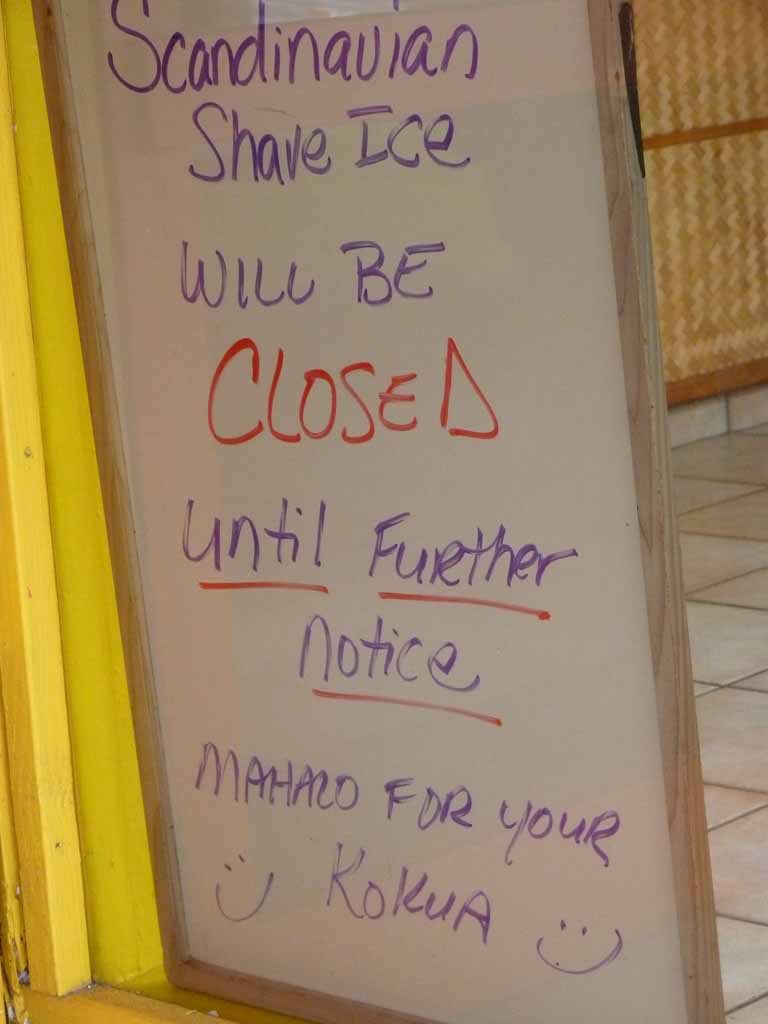 Scandinavian
Shave Ice
WILL BE
CLOSED
until Further
notice
MAHALO FOR YOUR
KOKUA